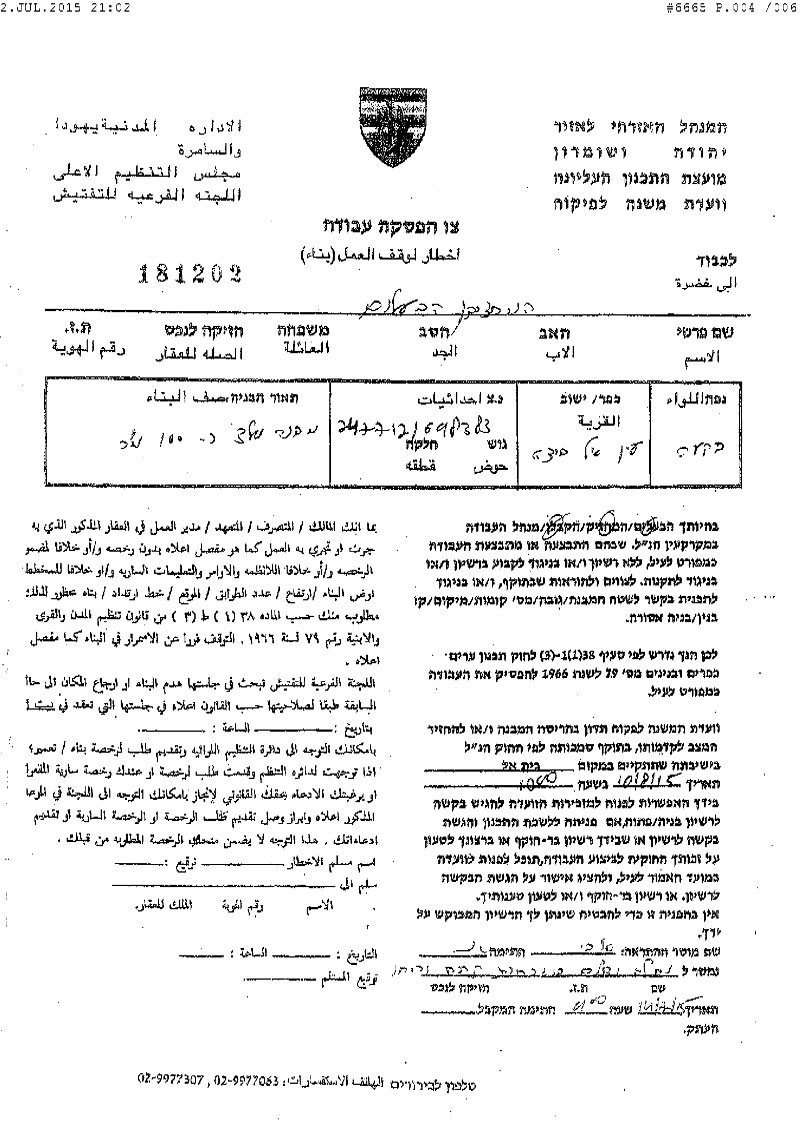 2.JUL.2015 21:02
#6665 P.004 /006
המנהל האזרחי לאזור
יהודה ושומרון
מועצת התכנון העליונה
וועדת משנה לפיקוח
الاداره المدنية يهودا
والسامرة
مجلس التنظيم الاعلى
اللجنه الفرعيه للتفتيش
צו הפסקת עבודה
اخطار لوقف العمل (بناء)
181202
לכבוד
الى حضرة
שם פרטי האב הסב משפחה חזיקה לנכס ת.ז.
الاسم الاب الجد العائلة الصله للعقار رقم الهوية
נפה اللواء כפר/ ישוב נ.צ احداثيات תאור הבניה وصف البناء
القرية
247712/698383
גוש חלקה
حوض قطعه
בקעה
100
בהיותך הבעלים/המחזיק/הקבלן/מנהל העבודה
במקרקעין הנ"ל. שבהם התבצעה או מתבצעת העבודה
כמפורט לעיל, ללא רשיון ו/או בניגוד לקבוע ברשיון ו/או
בניגוד לתקנות. לצווים ולהוראות שבתוקף, ו/או בניגוד
לתכנית בקשר לשטח המבנה/גובה/מס' קומות/מיקום/קו
בנין/בניה אסורה.
לכן הנך נדרש לפי סעיף 38(1)-(3) לחוק תכנון ערים
כפרים ובנינים מס' 79 לשנת 1966 להפסיק את העבודה
כמפורט לעיל.
וועדת המשנה לפקוח תדון בהריסת המבנה ו/או להחזיר
המצב לקדמותו, בתוקף סמכותה לפי החוק הנ"ל
בישיבתה שתתקיים במקום בית אל
תאריך 10/8/15 בשעה 1000
בידך האפשרות לפנות למזכירות הוועדה להגיש בקשה
לרשיון בניה/פתוח, אם פניתה ללשכת התכנון והגשת
בקשה לרשיון או שבידך רשיון בר-תוקף או ברצונך לטעון
על זכותך החוקית לביצוע העבודה, תוכל לפנות לוועדה
במועד האמור לעיל, ולהציג אישור על הגשת הבקשה
לרשיון. או רשיון בר-תוקף ו/או לטעון טענותיך.
אין בהפניה זו כדי להבטיח שינתן לך הרשיון המבוקש על
ידך.
שם מוסר ההתראה: חתימה
נמסר ל
שם ת.ז. חזיקה לנכס
תאריך שעה חתימת המקבל
העתק.
بما انك المالك / المتصرف / المتعهد / مدير العمل في العقار المذكور الذي به
جرت او تجري به العمل كما هو مفصل اعلاه بدون رخصه و/أو خلافا لمضمو
الرخصه و/أو خلافا للانظمه والاوامر والتعليمات الساريه و/او خلافا للمخطط
اوض البناء /ارتفاع / عدد الطوابق / الموقع / خط ارتداد / بناء محظور لذلك
مطلوب منك حسب الماده ٣٨ (١) ط (٣) من قانون تنظيم المدن والقرى
والابنية رقم ٧٩ لسنة ١٩٦٦ . التوقف فورا عن الاستمرار في البناء كما مفصل
اعلاه .
اللجنة الفرعية للتفتيش تبحث في جلستها هدم البناء او ارجاع المكان الى حالا
السابقة طبقا لصلاحيتها حسب القانون اعلاه في جلستها التي تعقد في
بتاريخ : الساعة :
بامكانك التوجه الى دائرة التنظيم اللوائيه وتقديم طلب لرخصة بناء / تعمير؛
اذا توجهت لدائره التنظم وقدمت طلب لرخصة او عندك رخصة سارية المفعوا
او برغبتك الادعاء بحقك القانوني لإنجاز بامكانك التوجه الى اللجنة في الموعا
المذكور اعلاه وابراز وصل تقديم طلب الرخصة او الرخصة السارية او تقديم
ادعاءاتك . هذا التوجه لا يضمن منحك الرخصة المطلوبه من قبلك .
اسم مسلم الاخطار توقيع :
سلم الى
الاسم رقم الهوية الملك للعقار.
التاريخ : الساعة :
توقيع المستلم
טלפון לבירורים الهاتف للاستفسارات: 02-9977063 , 02-9977307